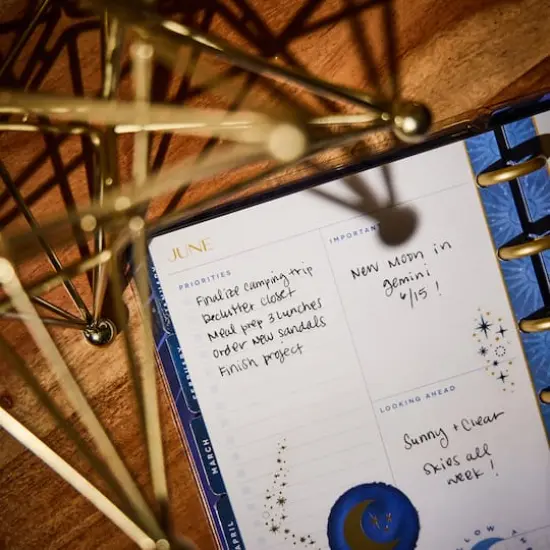 JUNE
PRIORITIES
Finalize camping trip
Declutter closet
Meal prep 3 lunches
Order New Sandals
Finish project
IMPORTANT
New Moon in
gemini
6/15 !
LOOKING AHEAD
Sunny + Clear
skies all
week !
MARCH
APRIL